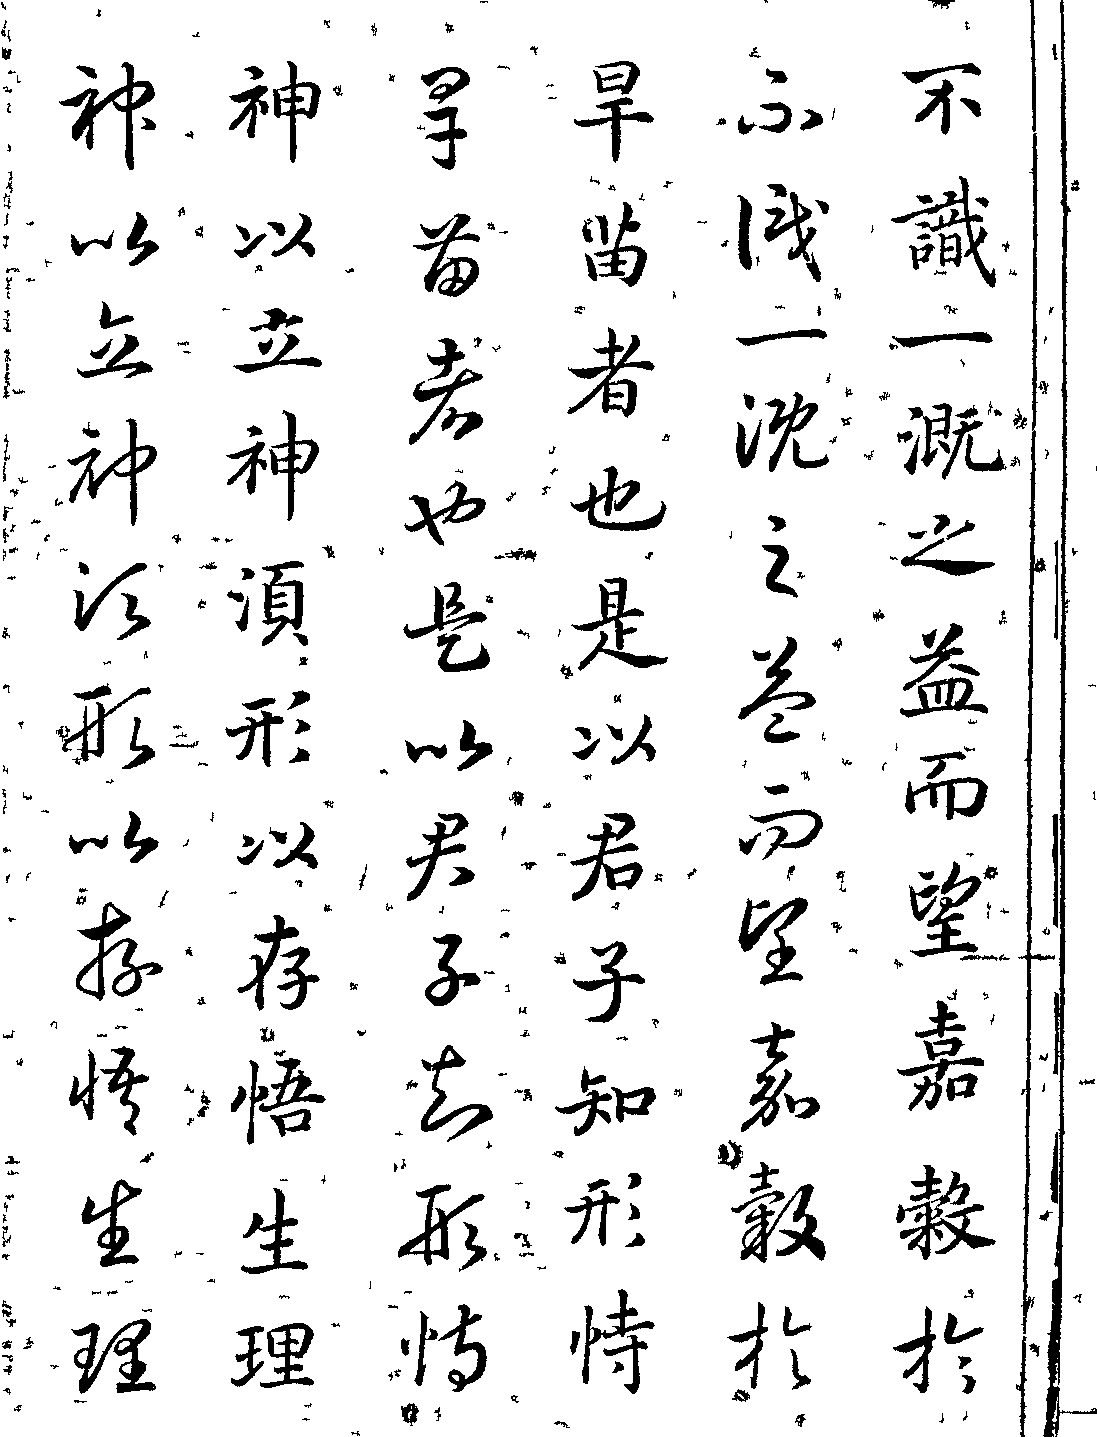 不識一溉之益而望嘉穀於
不識一溉之益而望嘉穀於
旱苗者也是以君子知形恃
旱苗者也是以君子知形恃
神以立神須形以存悟生理
神以立神須形以存悟生理